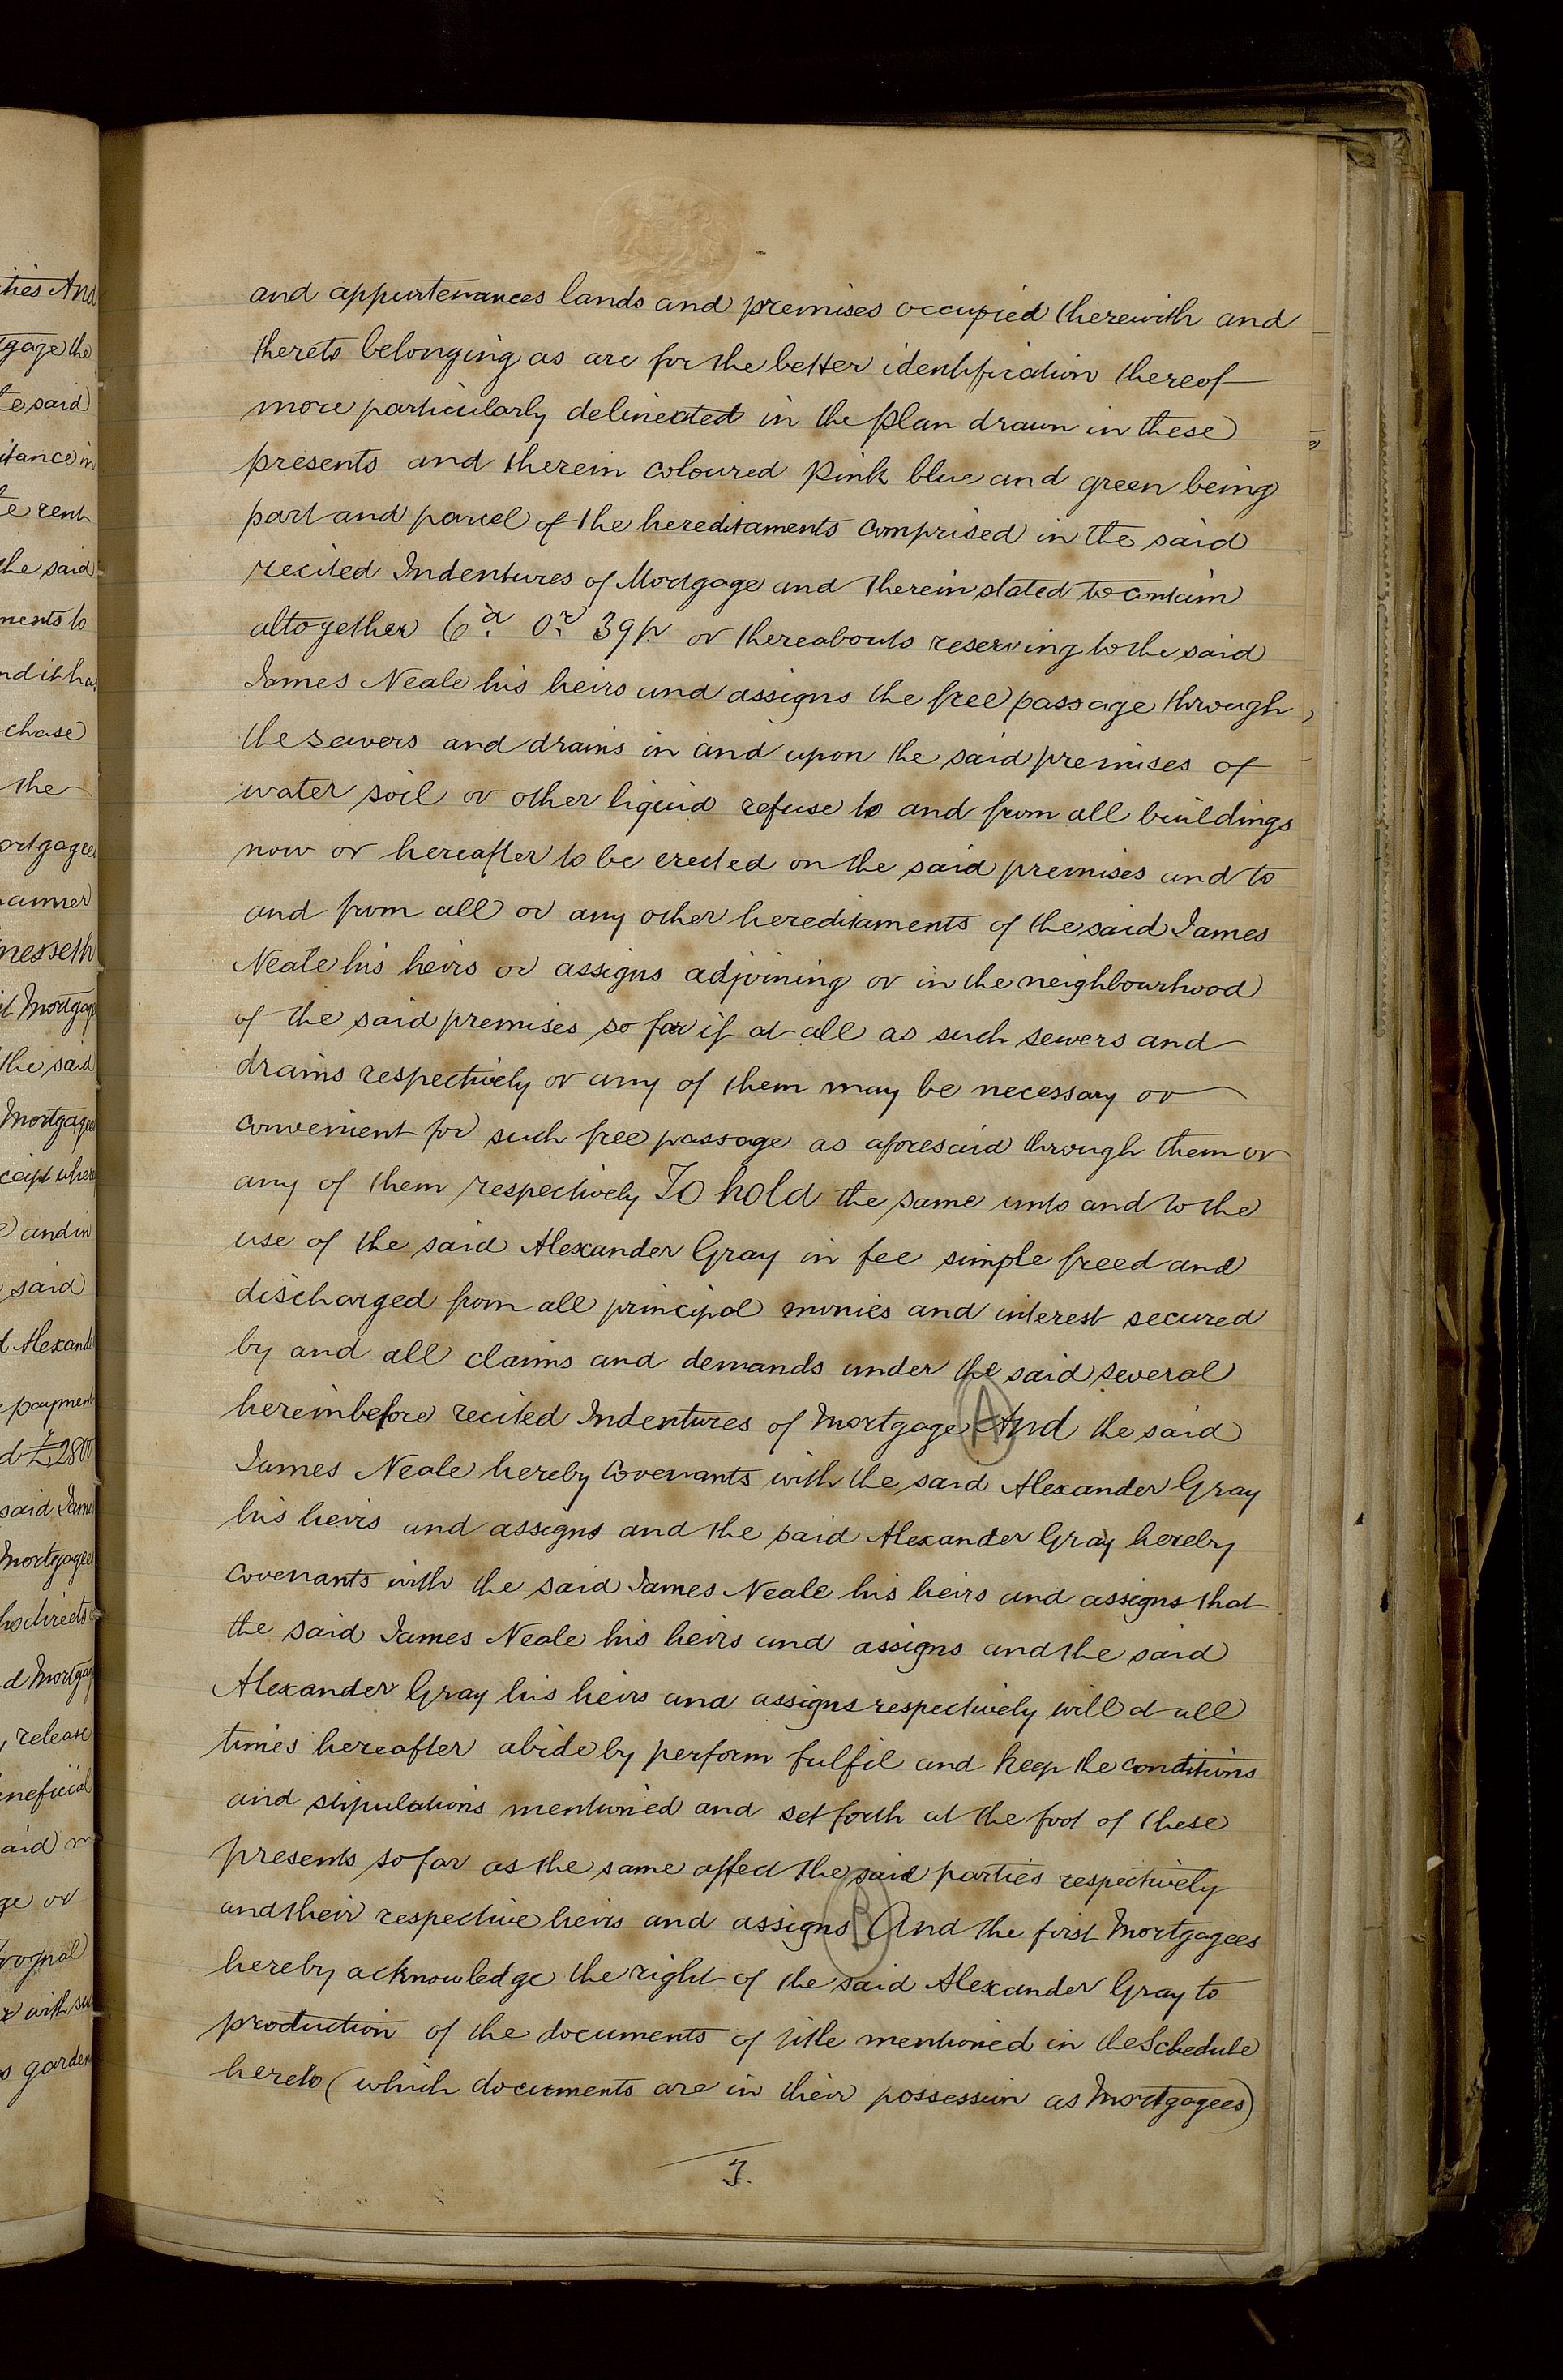 and appurtenances lands and premises occupied therewith and
thereto belonging as are for the better identification thereof
more particularly delineated in the plan drawn in these
presents and therein coloured pink blue and green being
part and parcel of the hereditaments comprised in the said
recited Indentures of Mortgage and therein stated to contain
altogether 6a. 0r. 39p. or thereabouts reserving to the said
James Neale his heirs and assigns the free passage through
the sewers and drains in and upon the said premises of
water soil or other liquid refuse to and from all buildings
now or hereafter to be erected on the said premises and to
and from all or any other hereditaments of the said James
Neale his heirs or assigns adjoining or in the neighbourhood
of the said premises so far if at all as such sewers and
drains respectively or any of them may be necessary or
convenient for such free passage as aforesaid through them or
any of them respectively To hold the same unto and to the
use of the said Alexander Gray in fee simple freed and
discharged from all principal monies and interest secured
by and all claims and demands under the said several
hereinbefore recited Indentures of Mortgage (A) And the said
James Neale hereby covenants with the said Alexander Gray
his heirs and assigns and the said Alexander Gray hereby
covenants with the said James Neale his heirs and assigns that
the said James Neale his heirs and assigns and the said
Alexander Gray his heirs and assigns respectively will at all
times hereafter abide by perform fulfil and keep the conditions
and stipulations mentioned and set forth at the foot of these
presents so far as the same affect the said parties respectively
and their respective heirs and assigns (B) And the first Mortgagees
hereby acknowledge the right of the said Alexander Gray to
production of the documents of title mentioned in the Schedule
hereto (which documents are in their possession as Mortgagees)
3.